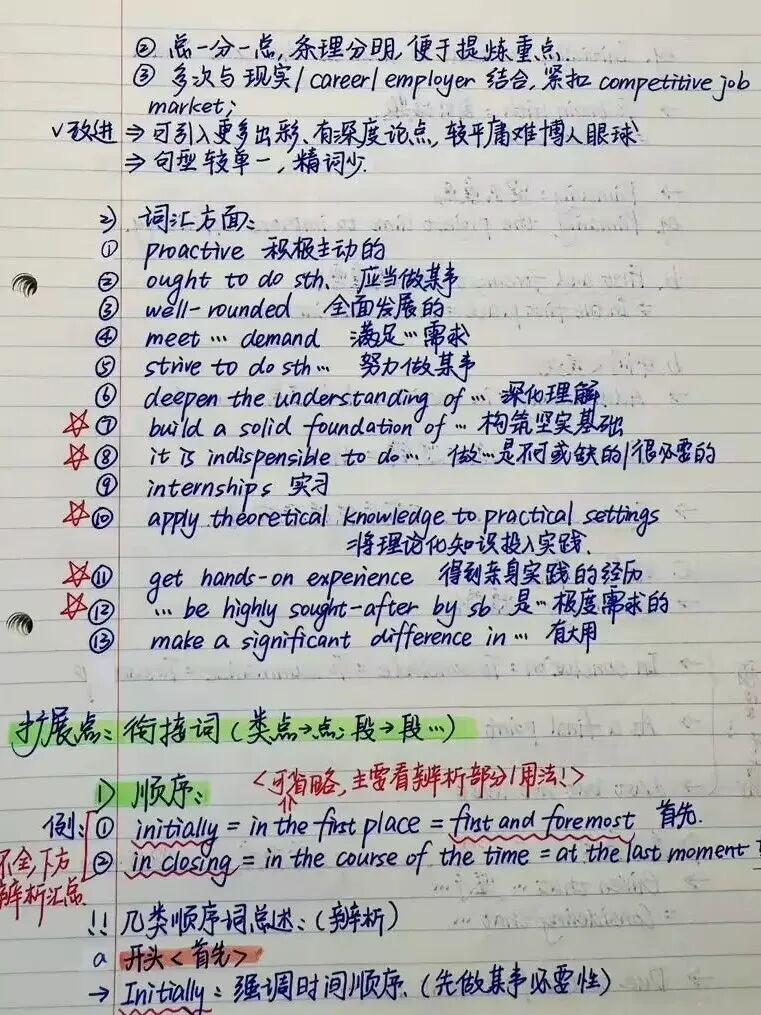 ② 总一分一点，条理分明，便于提炼重点.
③ 多次与现实/career/employer 结合，紧扣 competitive job
market；
√改进 ⇒ 可引入更多出彩、有深度论点，较平庸难博人眼球!
⇒ 句型较单一，精词少.
2) 词汇方面：
① proactive 积极主动的
② ought to do sth. 应当做某事
③ well-rounded 全面发展的
④ meet … demand 满足…需求
⑤ strive to do sth… 努力做某事
⑥ deepen the understanding of … 深化理解
☆⑦ build a solid foundation of … 构筑坚实基础
☆⑧ it is indispensible to do … 做…是不可或缺的/很必要的
⑨ internships 实习
☆⑩ apply theoretical knowledge to practical settings
将理论化知识投入实践.
☆⑪ get hands-on experience 得到亲身实践的经历
☆⑫ … be highly sought-after by sb 是…极度需求的
⑬ make a significant difference in … 有大用
扩展点：衔接词（类点→点；段→段…）
1) 顺序：
<可省略，主要看辨析部分/用法!>
例：① initially = in the first place = first and foremost 首先.
② in closing = in the course of the time = at the last moment
不全，下方
辨析汇总
!! 几类顺序词总述：（辨析）
a 开头<首先>
→ Initially：强调时间顺序.（先做某事必要性）